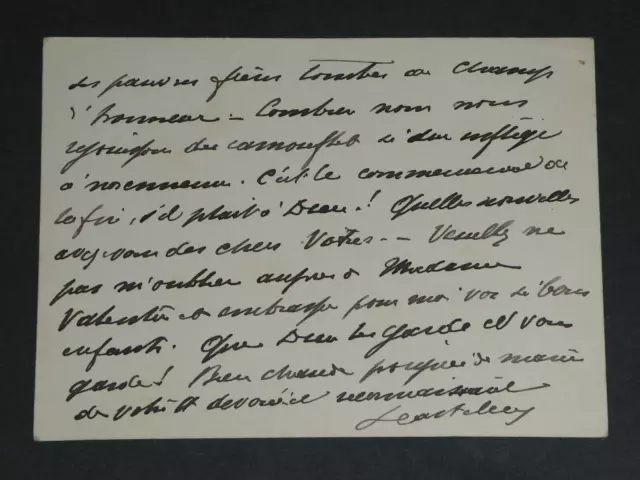 les pauvres frères tombés au champ
d'honneur – Combien nous nous
réjouissons du camouflet si dur infligé
à nos ennemis. C'est le commencement de
la fin, s'il plaît à Dieu! Quelles nouvelles
avez-vous des chers Vôtres. – Veuillez ne
pas m'oublier auprès de Madame
Valentin et embrassez pour moi vos si bons
enfants. Que Dieu les garde et vous
garde! Bien chaude poignée de main
de votre dévoué et reconnaissant